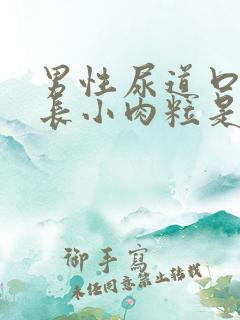 男性尿道口
长小肉粒是
御手写
未经同意禁止转载